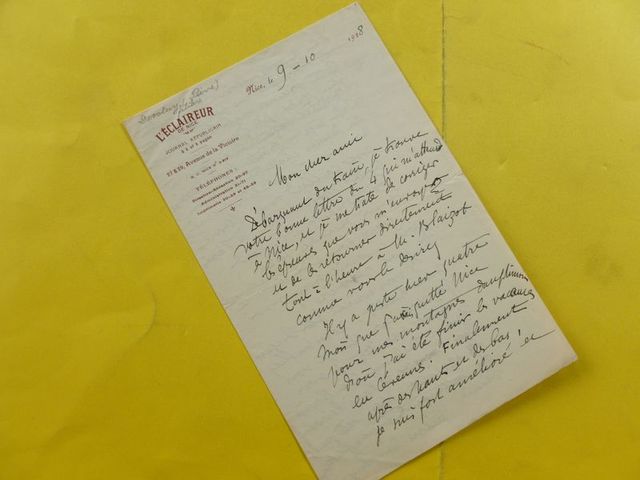 L'ÉCLAIREUR
DE NICE
JOURNAL RÉPUBLICAIN
27 & 29, Avenue de la Victoire
TÉLÉPHONES
Nice, le 9 - 10 1928
Mon cher ami
Débarquant du train, je trouve
votre bonne lettre du 4 qui m'attend
à Nice, et je me hâte de corriger
les épreuves que vous m'envoyez
et de les retourner directement
tout à l'heure à M. Blaizot
comme vous le désirez
Il y a juste hier quatre
mois que j'ai quitté Nice
pour mes montagnes dauphinoises
d'où j'ai été finir les vacances
en Cévennes. Finalement
après des hauts et des bas,
je suis fort amélioré et